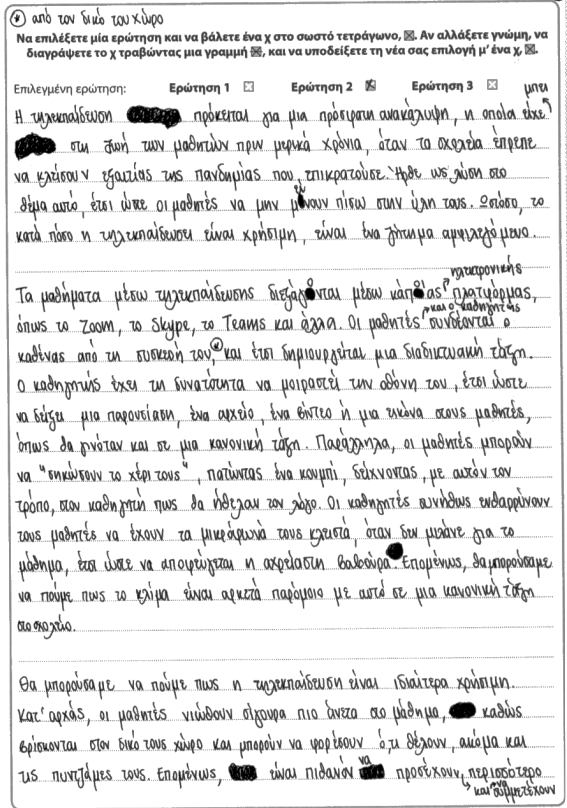 * από τον δικό του χώρο
Να επιλέξετε μία ερώτηση και να βάλετε ένα χ στο σωστό τετράγωνο, ☒. Αν αλλάξετε γνώμη, να
διαγράψετε το χ τραβώντας μια γραμμή ☒, και να υποδείξετε τη νέα σας επιλογή μ' ένα χ, ☒.
Επιλεγμένη ερώτηση: Ερώτηση 1 ☒ Ερώτηση 2 ☒ Ερώτηση 3 ☒
μπει
Η τηλεκπαίδευση πρόκειται για μια πρόσφατη ανακάλυψη, η οποία είχε
στη ζωή των μαθητών πριν μερικά χρόνια, όταν τα σχολεία έπρεπε
να κλείσουν εξαιτίας της πανδημίας που επικρατούσε. Ήρθε ως λύση στο
θέμα αυτό, έτσι ώστε οι μαθητές να μην μείνουν πίσω στην ύλη τους. Ωστόσο, το
κατά πόσο η τηλεκπαίδευσει είναι χρήσιμη, είναι ένα ζήτημα αμφιλεγόμενο.
ηλεκτρονικής
Τα μαθήματα μέσω τηλεκπαίδευσης διεξάγονται μέσω κάποιας πλατφόρμας,
και ο καθηγητής
όπως το Zoom, το Skype, το Teams και άλλα. Οι μαθητές συνδέονται ο
καθένας από τη συσκευή του,* και έτσι δημιουργείται μια διαδικτυακή τάξη.
Ο καθηγητής έχει τη δυνατότητα να μοιραστεί την οθόνη του, έτσι ώστε
να δείξει μια παρουσίαση, ένα αρχείο, ένα βίντεο ή μια εικόνα στους μαθητές,
όπως θα γινόταν και σε μια κανονική τάξη. Παράλληλα, οι μαθητές μπορούν
να "σηκώσουν το χέρι τους", πατώντας ένα κουμπί, δείχνοντας, με αυτόν τον
τρόπο, στον καθηγητή πως θα ήθελαν τον λόγο. Οι καθηγητές συνήθως ενθαρρύνουν
τους μαθητές να έχουν τα μικρόφωνά τους κλειστά, όταν δεν μιλάνε για το
μάθημα, έτσι ώστε να αποφεύγεται η αχρείαστη βαβούρα. Επομένως, θα μπορούσαμε
να πούμε πως το κλίμα είναι αρκετά παρόμοιο με αυτό σε μια κανονική τάξη
στο σχολείο.
Θα μπορούσαμε να πούμε πως η τηλεκπαίδευση είναι ιδιαίτερα χρήσιμη.
Κατ' αρχάς, οι μαθητές νιώθουν σίγουρα πιο άνετα στο μάθημα, καθώς
βρίσκονται στον δικό τους χώρο και μπορούν να φορέσουν ό,τι θέλουν, ακόμα και
τις πυντζάμες τους. Επομένως, είναι πιθανόν να προσέχουν περισσότερο
και να συμμετέχουν